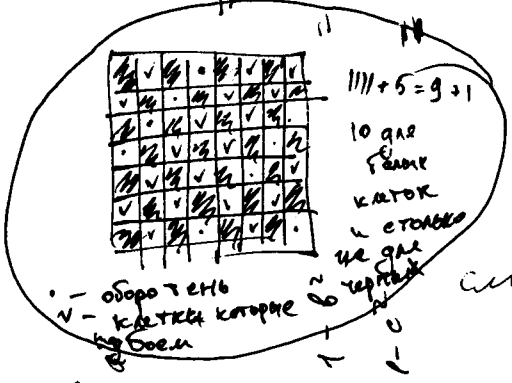 |||| + 5 = 9 + 1
10 для
белых
клеток
и столько
же для
черных
• – оборотень
v – клетки которые
бьем